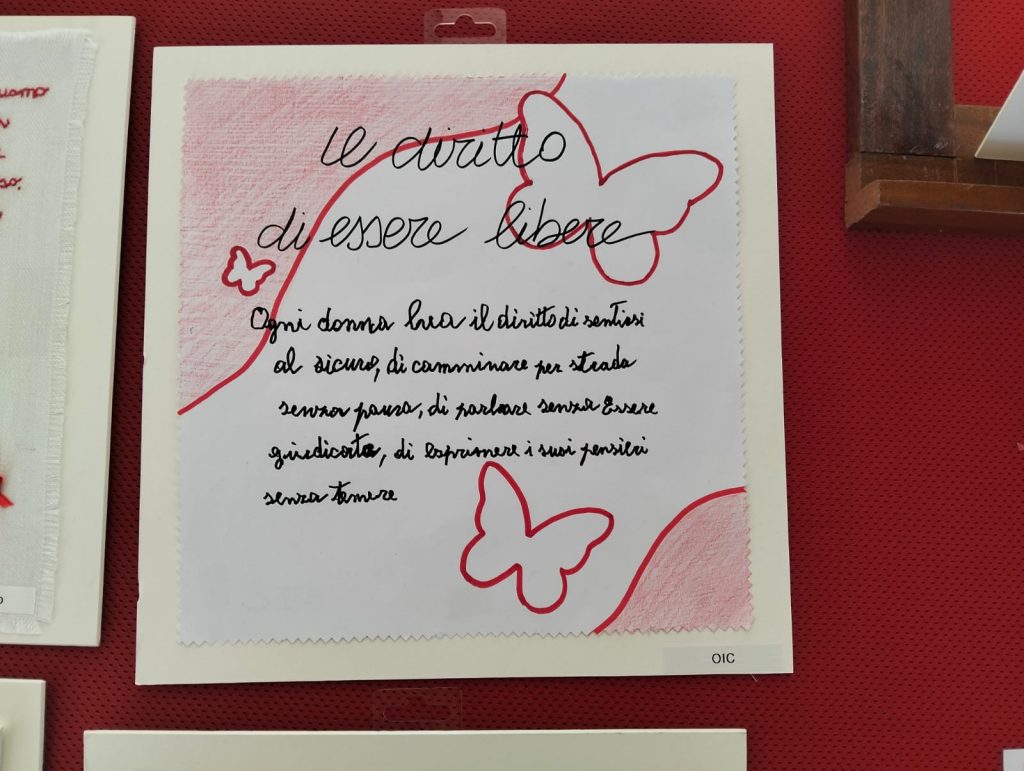 uomo
so.
Il diritto
di essere libere
Ogni donna ha il diritto di sentirsi
al sicuro, di camminare per strada
senza paura, di parlare senza Essere
giudicata, di esprimere i suoi pensieri
senza temere
OIC